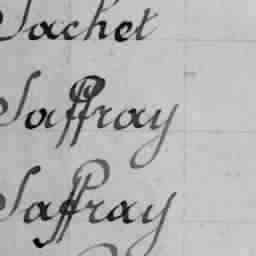 Sachet
Saffray
Saffray